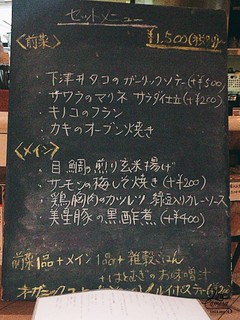 セットメニュー
〈前菜〉 ¥1,500
・下津井タコのガーリックソテー(+¥500)
・サワラのマリネ サラダ仕立(+¥200)
・キノコのフラン
・カキのオーブン焼き
〈メイン〉
・目鯛の煎り玄米揚げ
・サーモンの梅しそ焼き(+¥200)
・鶏胸肉のカツレツ カレーソース
・美星豚の黒酢煮(+¥400)
前菜1品+メイン1品+雑穀ごはん
+はとむぎのお味噌汁
オーガニックコーヒー /ルイボスティー